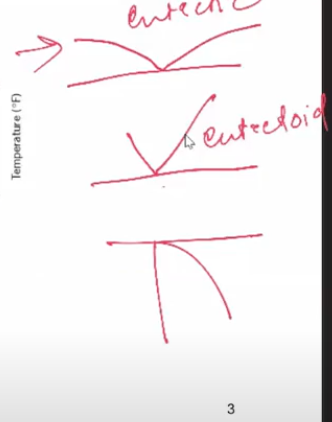 eutectic
Temperature (°F)
eutectoid
3